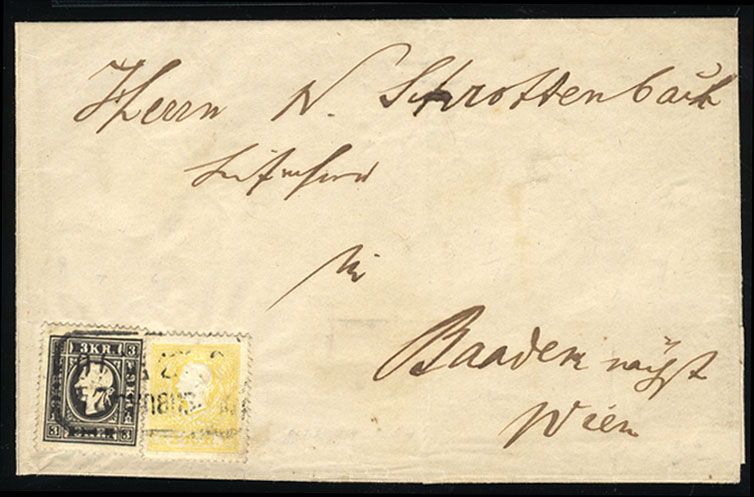 Herrn N. Schrottenbach
in
Baaden nächst
Wien
3 KR.
3 3
3 3